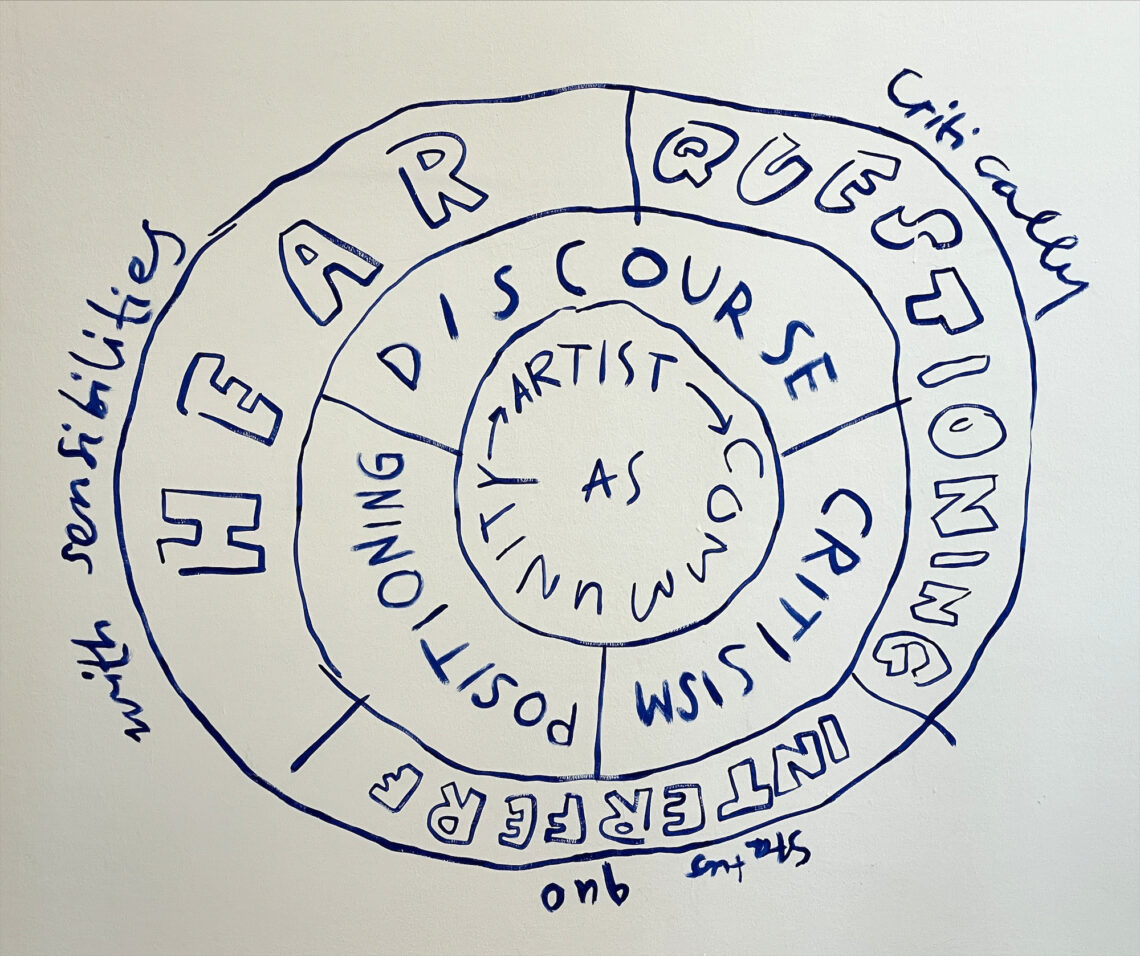 ARTIST
AS
COMMUNITY
DISCOURSE
CRITISISM
POSITIONING
HEAR
QUESTIONING
INTERFERE
with sensibilities
Critically
status quo